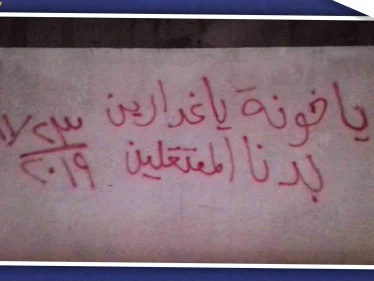 يا خونة يا غدارين
بدنا المعتقلين
١١/٢٣
٢٠١٩